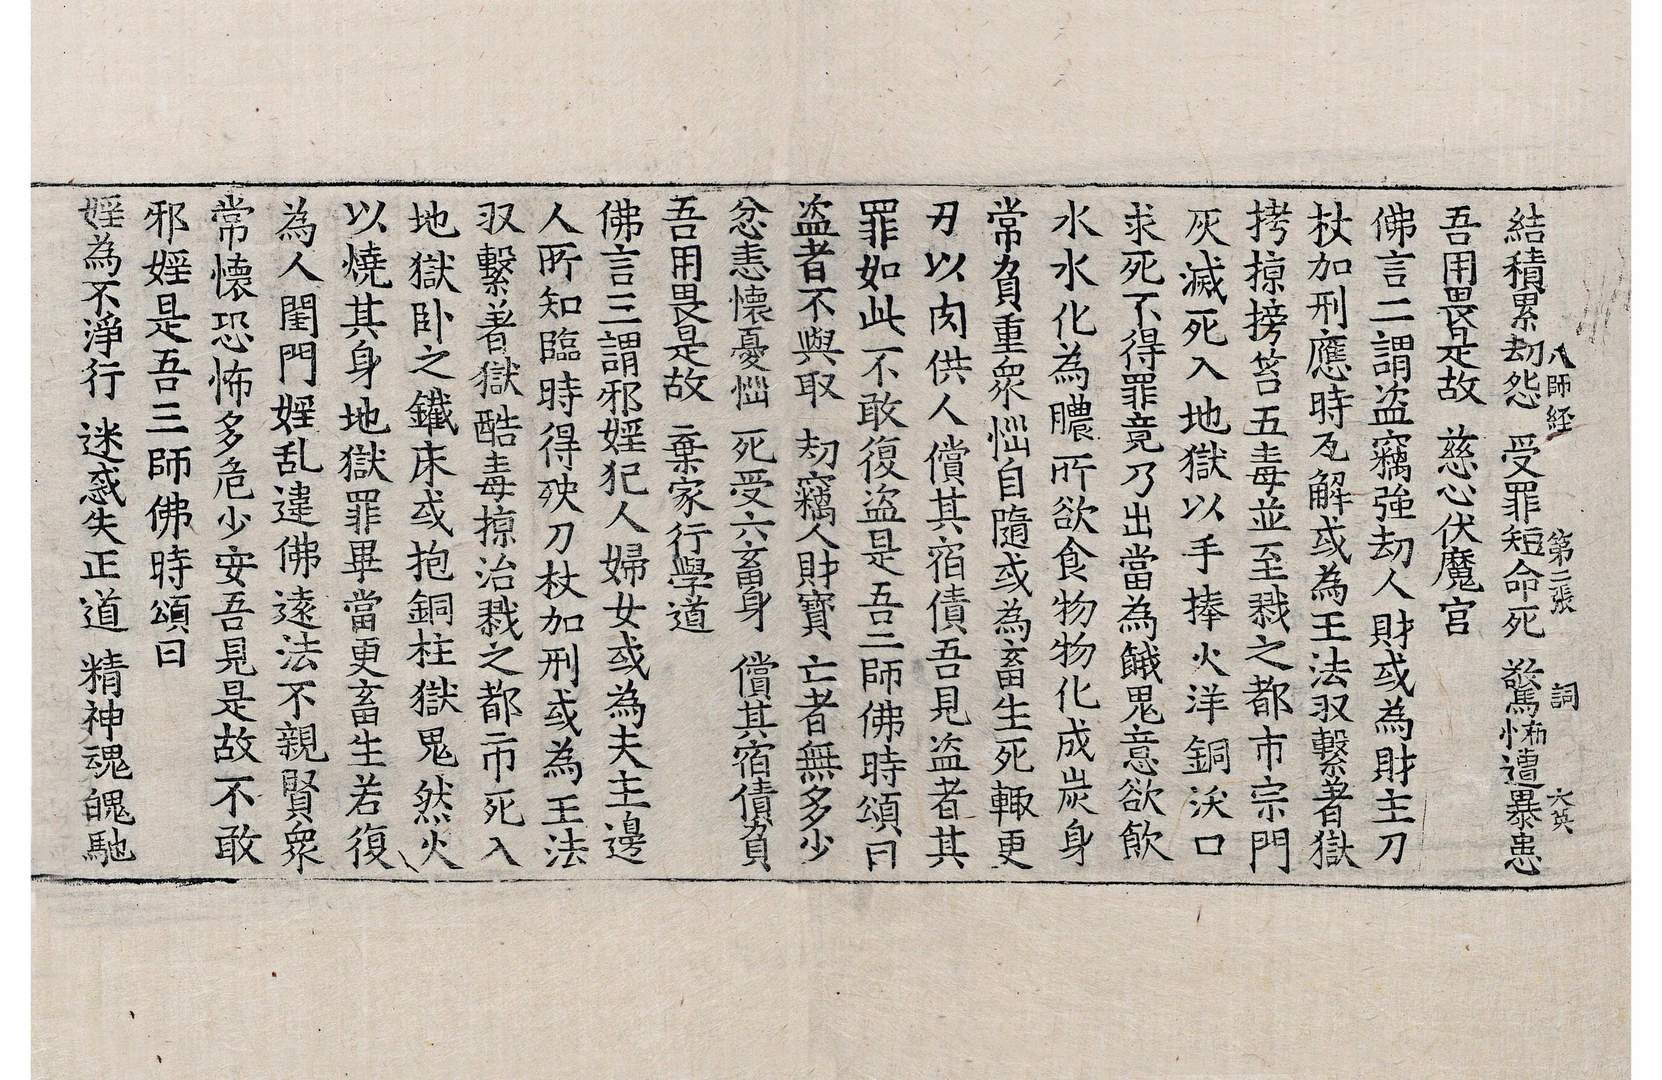 八師経　第二張　詞　大英
結積累劫怨　受罪短命死　驚怖遭暴患
吾用畏是故　慈心伏魔官
佛言二謂盗竊強劫人財或為財主刀
杖加刑應時瓦解或為王法収繫著獄
拷掠搒笞五毒並至戮之都市宗門
灰滅死入地獄以手捧火洋銅沃口
求死不得罪竟乃出當為餓鬼意欲飲
水水化為膿所欲食物物化成炭身
常負重衆惱自隨或為畜生死輙更
刃以肉供人償其宿債吾見盗者其
罪如此不敢復盗是吾二師佛時頌曰
盗者不與取　劫竊人財寶　亡者無多少
忿恚懷憂惱　死受六畜身　償其宿債負
吾用畏是故　棄家行學道
佛言三謂邪婬犯人婦女或為夫主邊
人所知臨時得殃刀杖加刑或為王法
収繫著獄酷毒掠治戮之都市死入
地獄卧之鐵床或抱銅柱獄鬼然火
以燒其身地獄罪畢當更畜生若復
為人閨門婬乱違佛遠法不親賢衆
常懷恐怖多危少安吾見是故不敢
邪婬是吾三師佛時頌曰
婬為不淨行　迷惑失正道　精神魂魄馳